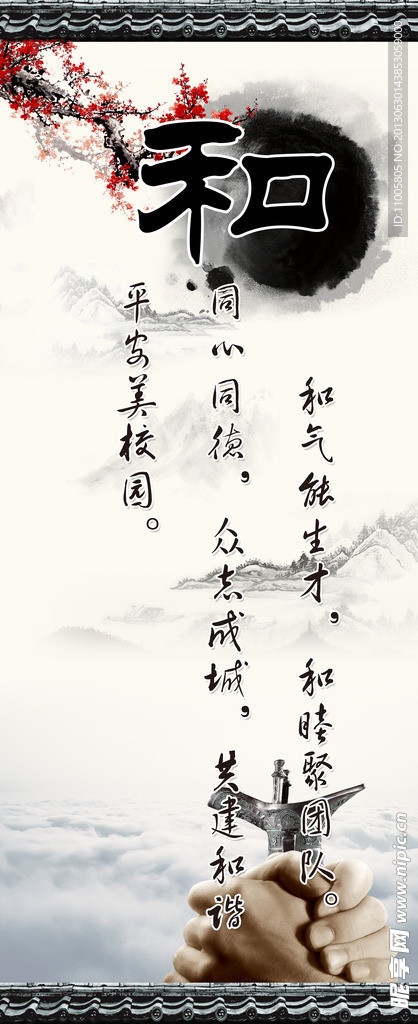 和
和气能生才，和睦聚团队。
同心同德，众志成城，共建和谐
平安美校园。
ID:11005805 NO:20130630143853059005
昵享网 www.nipic.cn